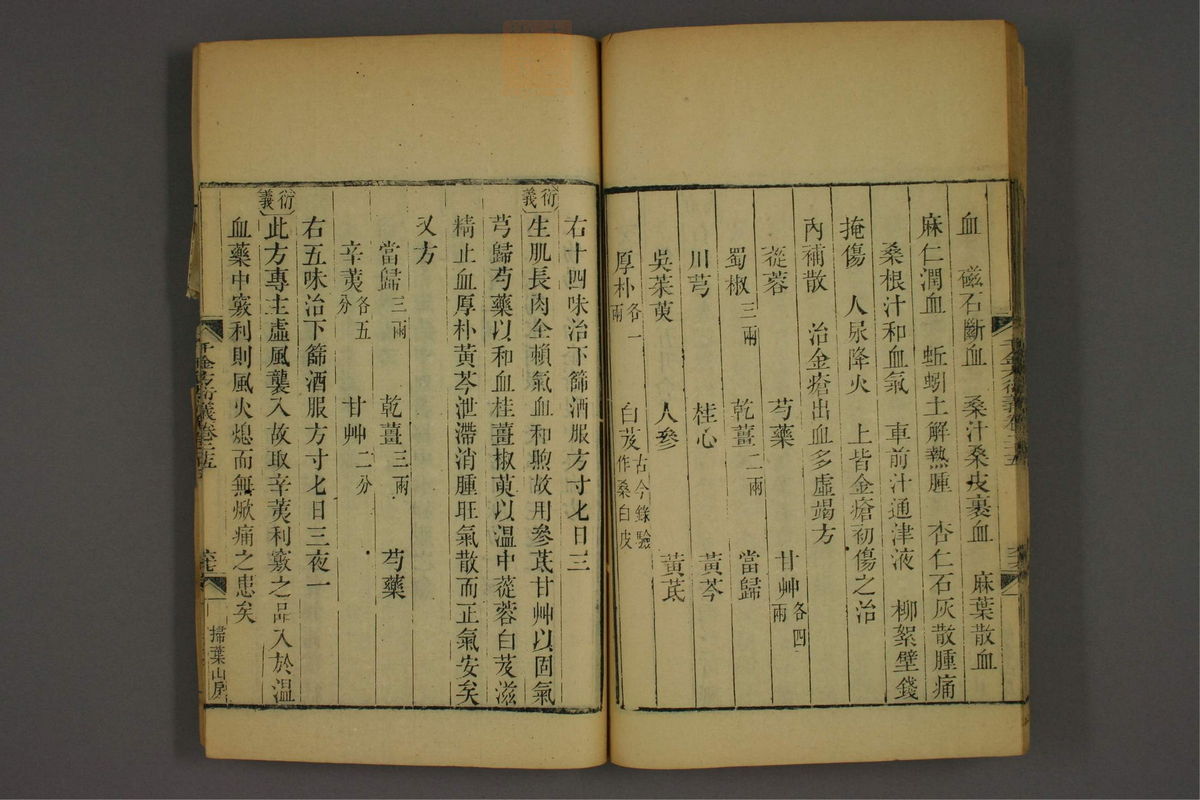 血　磁石斷血　桑汁桑皮裹血　麻葉散血
麻仁潤血　蚯蚓土解熱腫　杏仁石灰散腫痛
桑根汁和血氣　車前汁通津液　柳絮壁錢
掩傷　人尿降火　上皆金瘡初傷之治
內補散　治金瘡出血多虛竭方
蓯蓉　芍藥　甘艸各四兩
蜀椒三兩　乾薑二兩　當歸
川芎　桂心　黃芩
吳茱萸　人參　黃芪
厚朴各一兩　白芨古今錄驗作桑白皮
右十四味治下篩酒服方寸匕日三
衍義
生肌長肉全賴氣血和煦故用參芪甘艸以固氣
芎歸芍藥以和血桂薑椒萸以溫中蓯蓉白芨滋
精止血厚朴黃芩泄滯消腫旺氣散而正氣安矣
又方
當歸三兩　乾薑三兩　芍藥
辛荑各五分　甘艸二分
右五味治下篩酒服方寸匕日三夜一
衍義
此方專主虛風襲入故取辛荑利竅之品入於溫
血藥中竅利則風火熄而無焮痛之患矣
千金方衍義卷二十五
掃葉山房